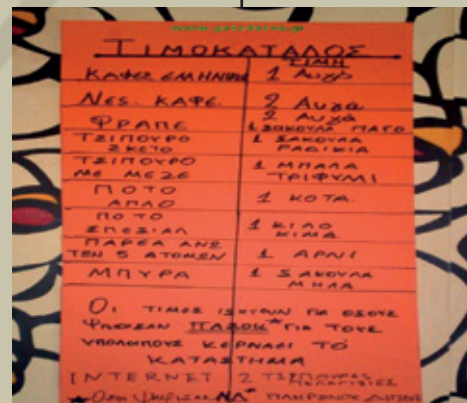 ΤΙΜΟΚΑΤΑΛΟΣ
ΤΙΜΗ
ΚΑΦΕΣ ΕΛΛΗΝΙΚΟΣ 1 Αυγο
ΝΕΣ. ΚΑΦΕ. 2 Αυγα
ΦΡΑΠΕ 2 Αυγά
1 ΣΑΚΟΥΛΑ ΠΑΓΟ
ΤΣΙΠΟΥΡΟ ΣΚΕΤΟ 1 ΣΑΚΟΥΛΑ ΡΑΔΙΚΙΑ
ΤΣΙΠΟΥΡΟ ΜΕ ΜΕΖΕ 1 ΜΠΑΛΑ ΤΡΙΦΥΛΛΙ
ΠΟΤΟ ΑΠΛΟ 1 ΚΟΤΑ.
ΠΟΤΟ ΣΠΕΣΙΑΛ 1 ΚΙΛΟ ΚΙΜΑ
ΠΑΡΕΑ ΑΝΩ ΤΩΝ 5 ΑΤΟΜΩΝ 1 ΑΡΝΙ
ΜΠΥΡΑ 1 ΣΑΚΟΥΛΑ ΜΗΛΑ
ΟΙ ΤΙΜΕΣ ΙΣΧΥΟΥΝ ΓΙΑ ΟΣΟΥΣ
ΨΗΦΙΣΑΝ ΠΑΣΟΚ* ΓΙΑ ΤΟΥΣ
ΥΠΟΛΟΙΠΟΥΣ ΚΕΡΝΑΕΙ ΤΟ
ΚΑΤΑΣΤΗΜΑ
INTERNET 2